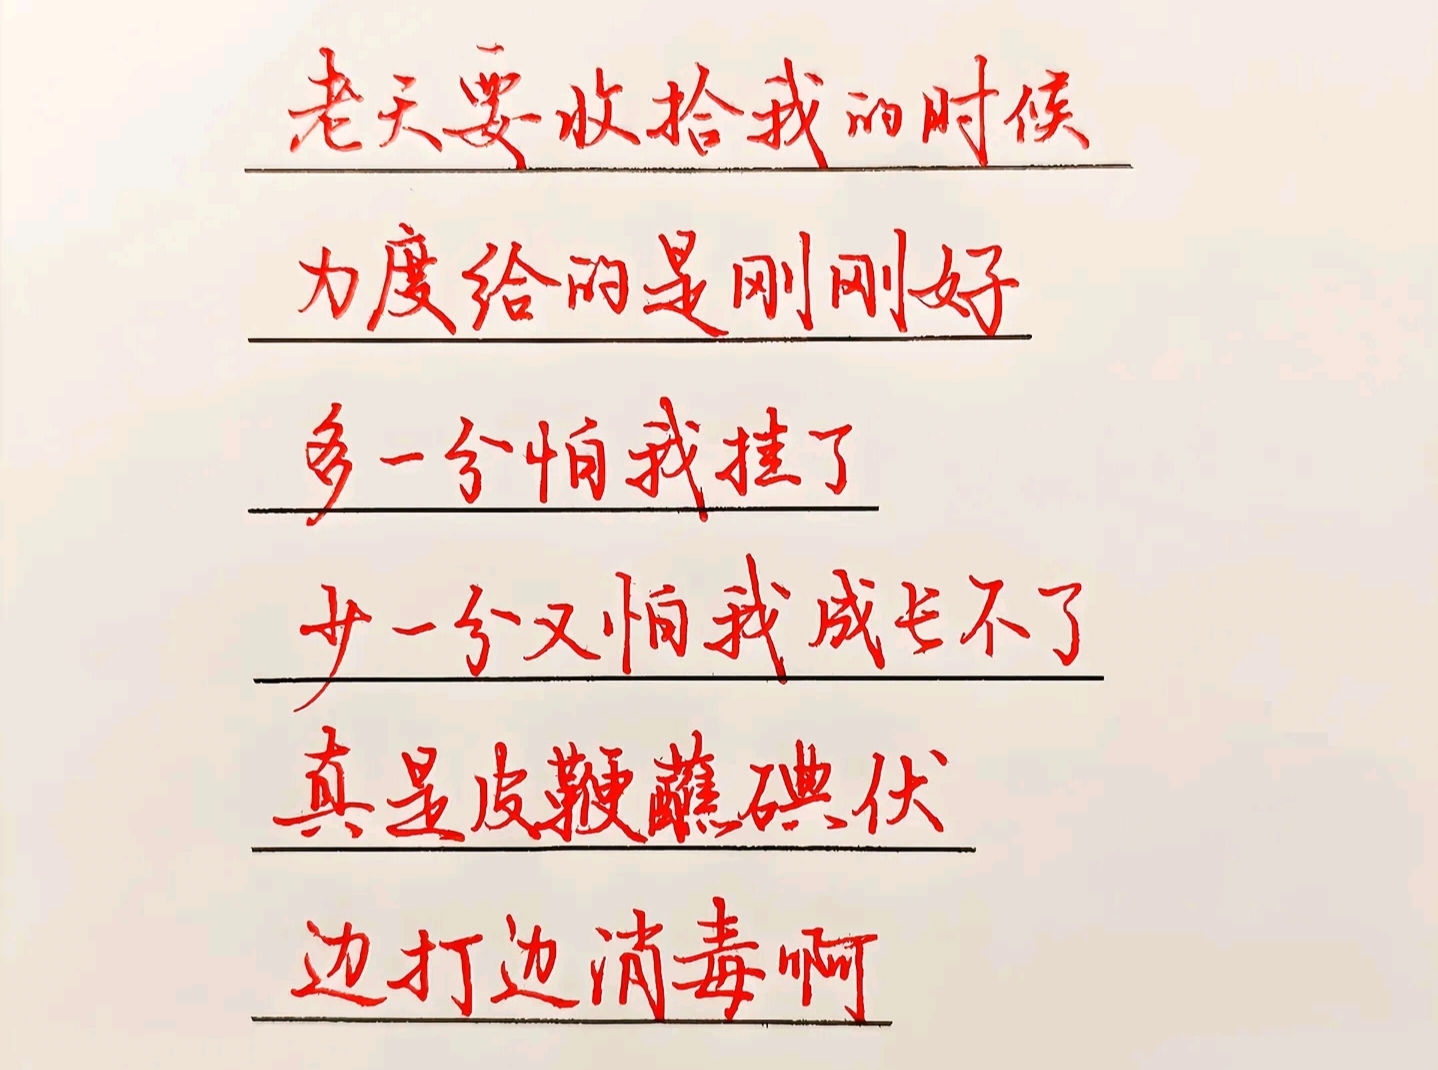 老天要收拾我的时候
力度给的是刚刚好
多一分怕我挂了
少一分又怕我成长不了
真是皮鞭蘸碘伏
边打边消毒啊